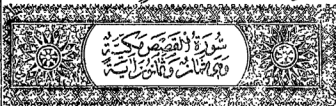 سُورَةُ الْقَصَصِ مَكِّيَّةٌ
وَهِيَ ثَمَانٌ وَثَمَانُونَ آيَةً